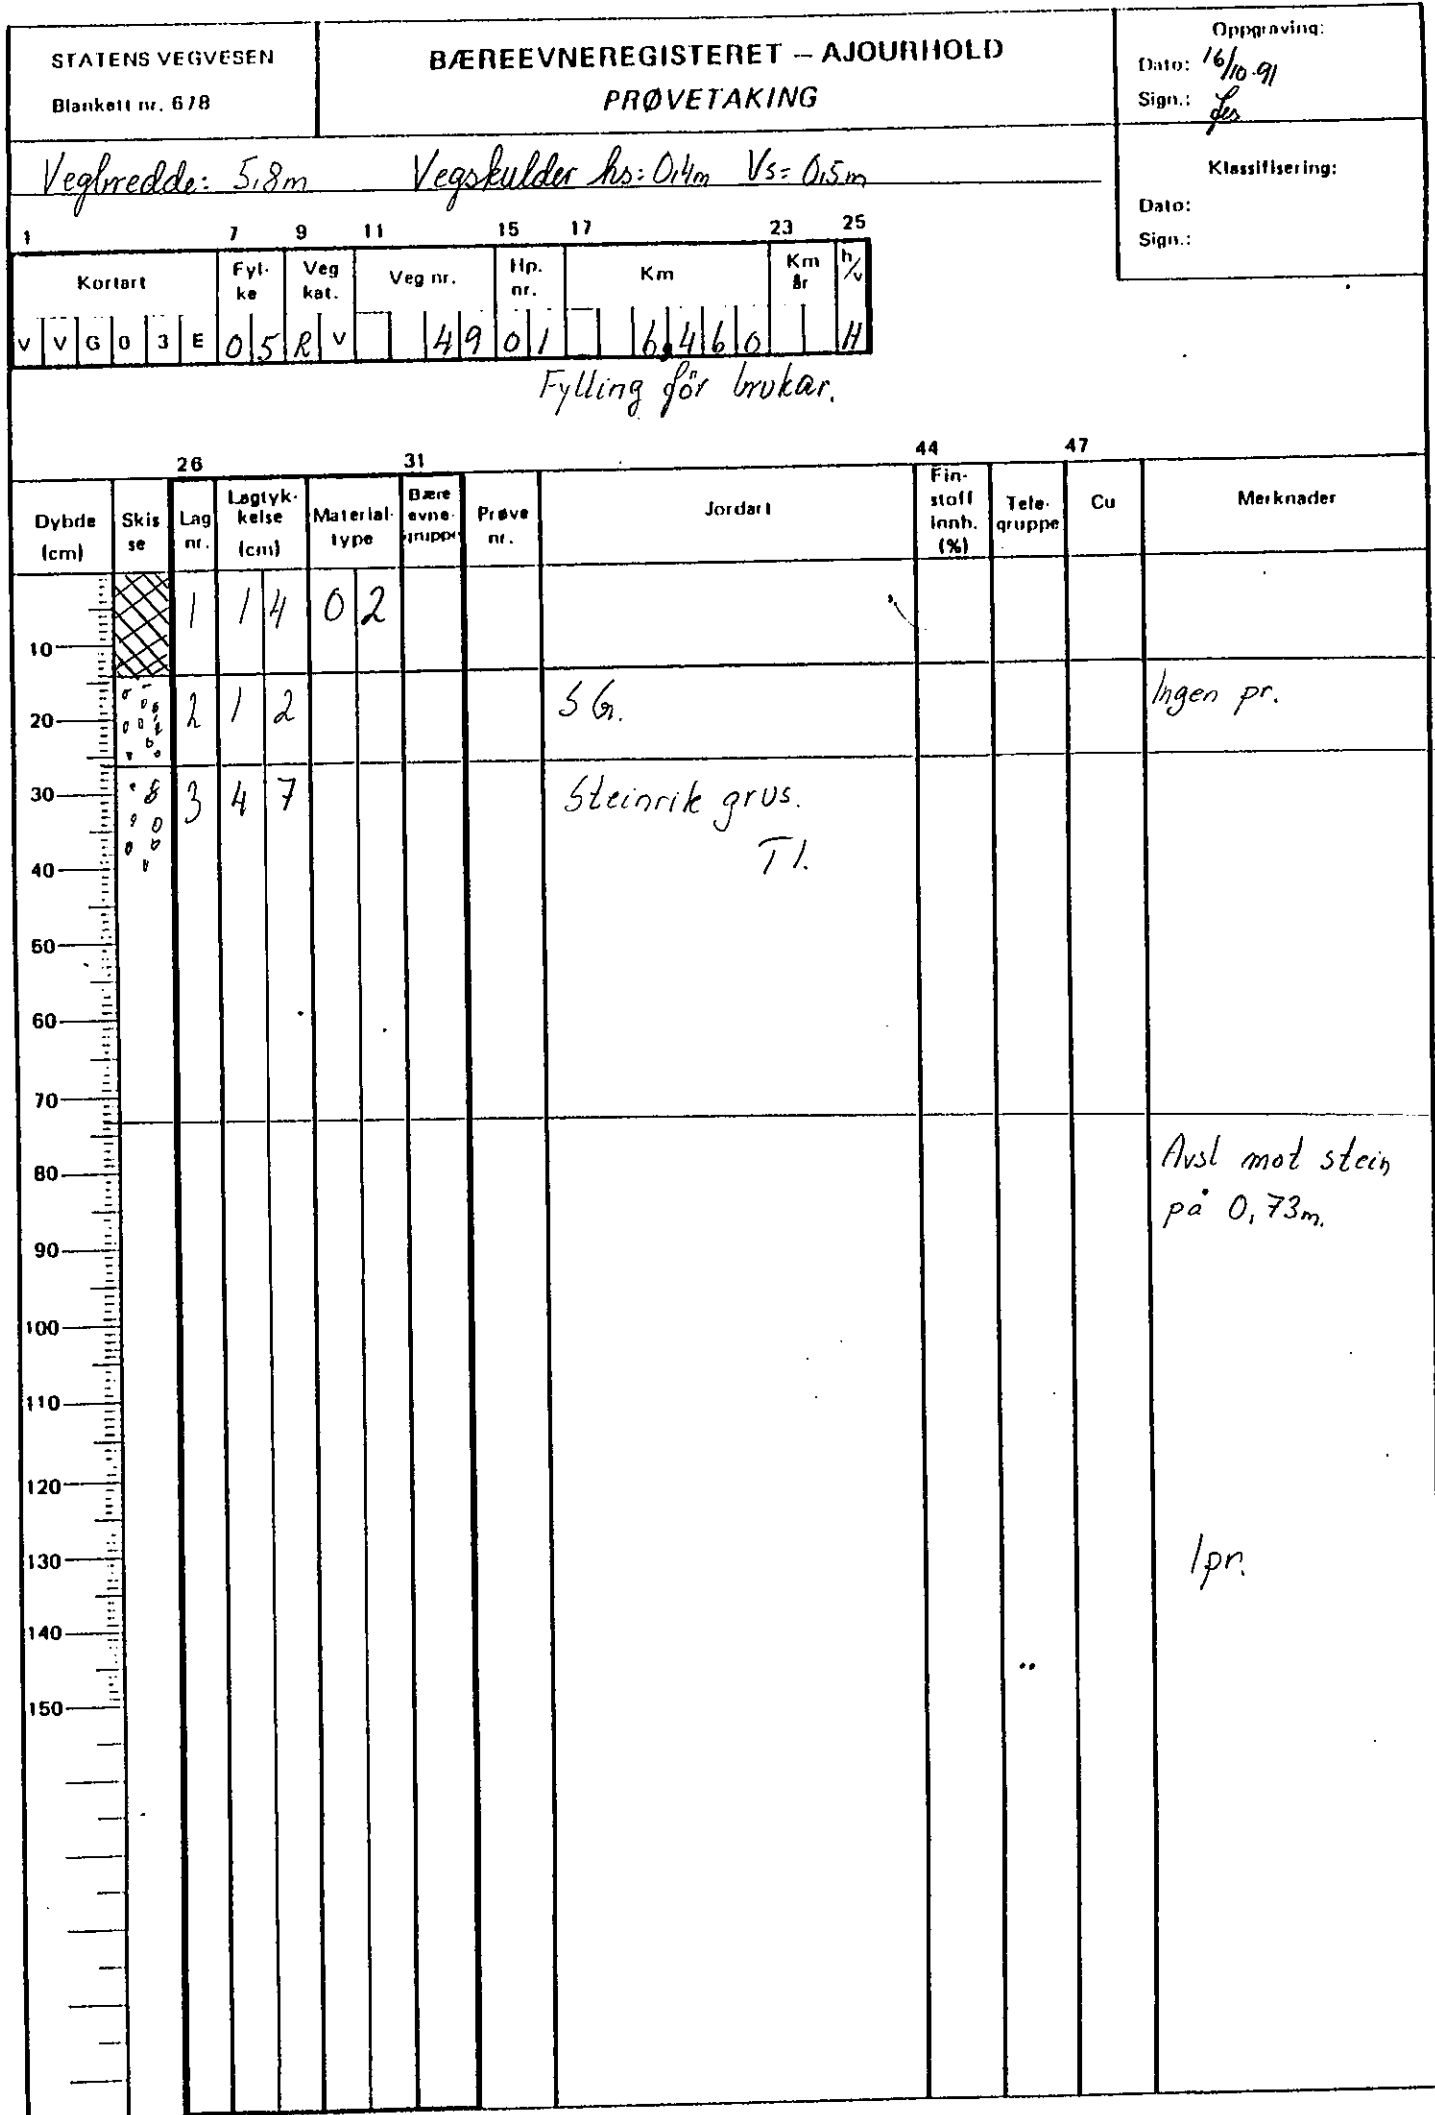 STATENS VEGVESEN
Blankett nr. 678
BÆREEVNEREGISTERET – AJOURHOLD
PRØVETAKING
Oppgraving:
Dato: 16/10-91
Sign.:
Klassifisering:
Dato:
Sign.:
Vegbredde: 5,8m Vegskulder hs: 0,4m Vs= 0,5m
1 7 9 11 15 17 23 25
Kortart Fyl-ke Veg kat. Veg nr. Hp. nr. Km Km år h/v
V V G 0 3 E 0 5 R V 4 9 0 1 6,4 6 0 H
Fylling för brukar.
26 31 44 47
Dybde (cm) Skisse Lag nr. Lagtyk-kelse (cm) Material-type Bære evne-gruppe Prøve nr. Jordart Fin-stoff innh. (%) Tele-gruppe Cu Merknader
1 1 4 0 2
10
2 1 2 S G. Ingen pr.
20
30 3 4 7 Steinrik grus.
T 1.
40
50
60
70
80 Avsl mot stein
på 0,73m.
90
100
110
120
130 1 pr.
140
150